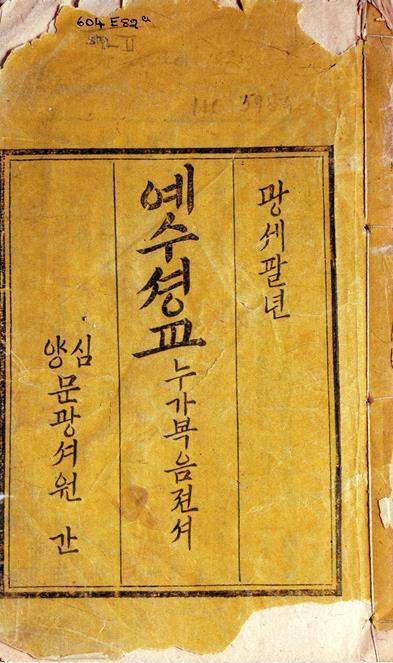 604 E82 a
광세팔년
예수셩교
누가복음젼셔
심양
문광셔원 간